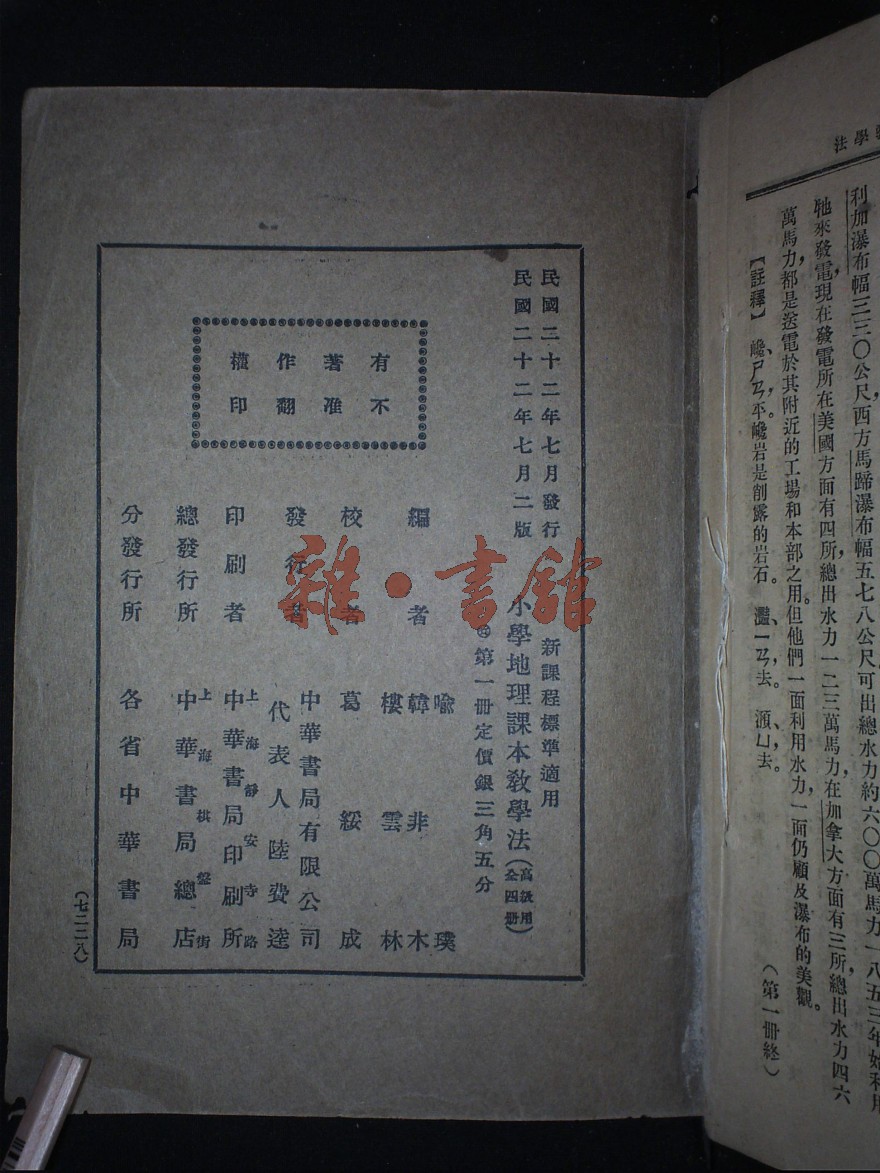 學法
利加瀑布幅三三〇公尺，西方馬蹄瀑布幅五七八公尺，可出總水力約六〇〇萬馬力，一八五三年始利用
牠來發電，現在發電所在美國方面有四所，總出水力一二三萬馬力，在加拿大方面有三所，總出水力四六
萬馬力，都是送電於其附近的工場和本部之用。但他們一面利用水力，一面仍顧及瀑布的美觀。
【註釋】 巉，ㄔㄢ平。巉岩是削露的岩石。 灩，ㄧㄢ去。 澦，ㄩ去。
（第一冊終）
民國二十二年七月發行
民國二十二年七月二版
新課程標準適用
小學地理課本教學法（高級用 全四冊）
第一冊定價銀三角五分
有著作權
不准翻印
編者
喻璞
韓非木
樓雲林
校者 葛綏成
發行者 中華書局有限公司
代表人 陸費逵
印刷者 上海靜安寺路
中華書局印刷所
總發行所 上海棋盤街
中華書局總店
分發行所 各省中華書局
（七二二八）
雜·書館